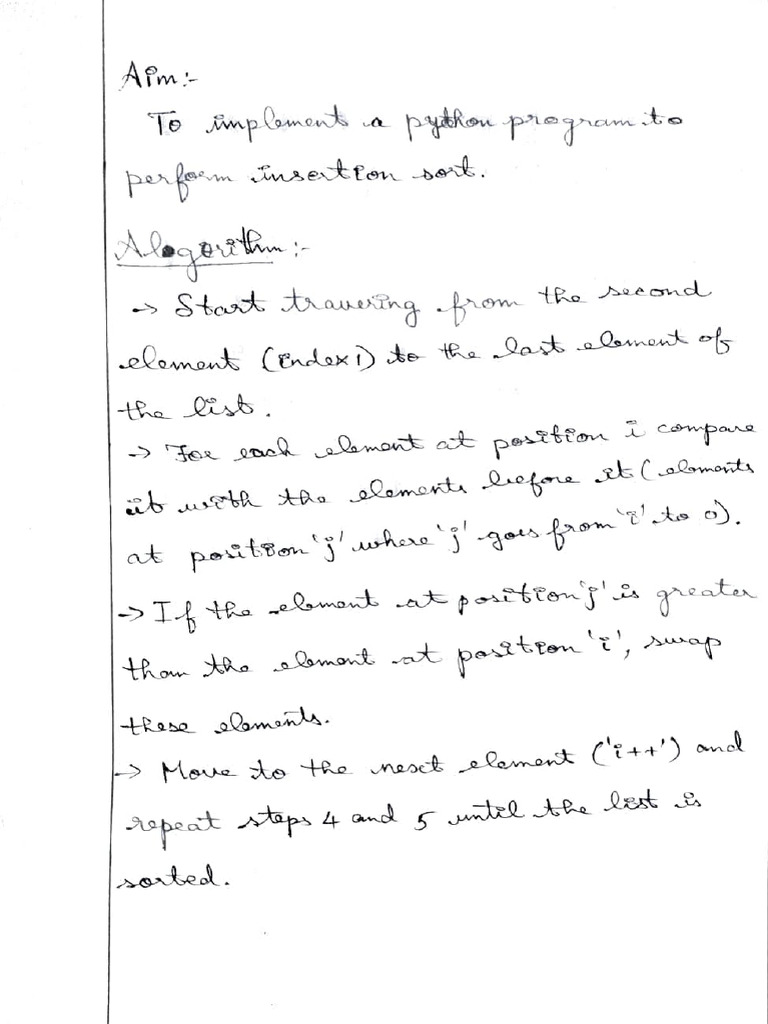 Aim:-
To implement a python program to
perform insertion sort.
Alogorithm:-
-> Start travering from the second
element (index 1) to the last element of
the list.
-> For each element at position i compare
it with the elements before it (elements
at position 'j' where 'j' goes from 'i' to 0).
-> If the element at position 'j' is greater
than the element at position 'i', swap
these elements.
-> Move to the next element ('i++') and
repeat steps 4 and 5 until the list is
sorted.